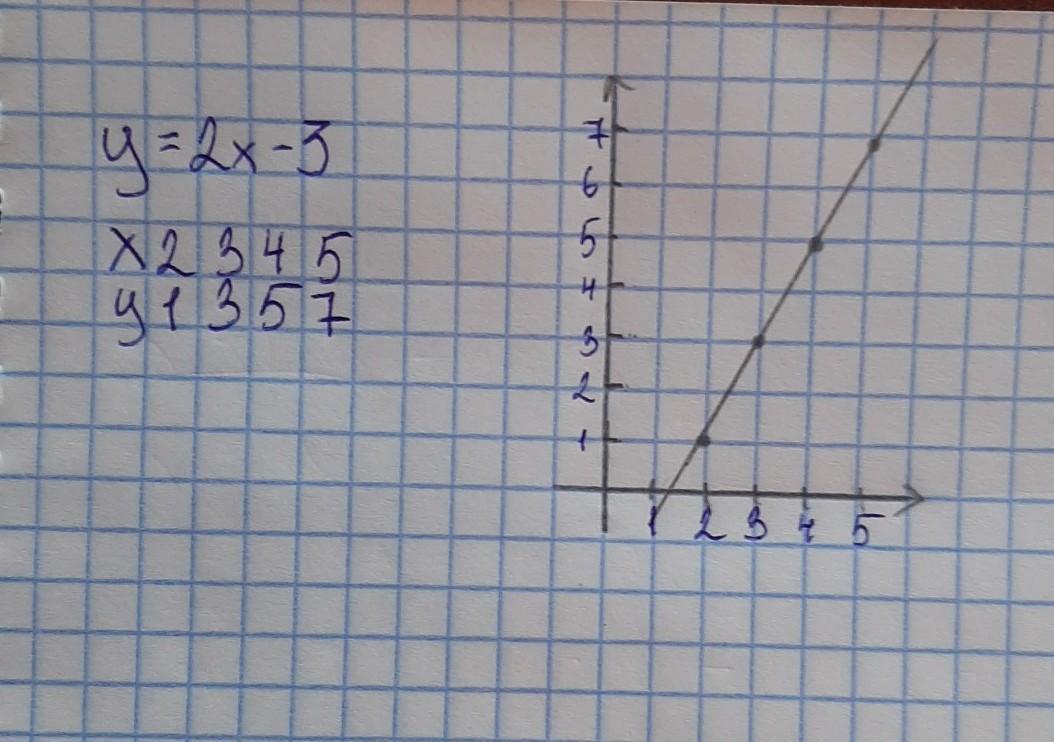 y=2x-3
x 2 3 4 5
y 1 3 5 7
7
6
5
4
3
2
1
1 2 3 4 5